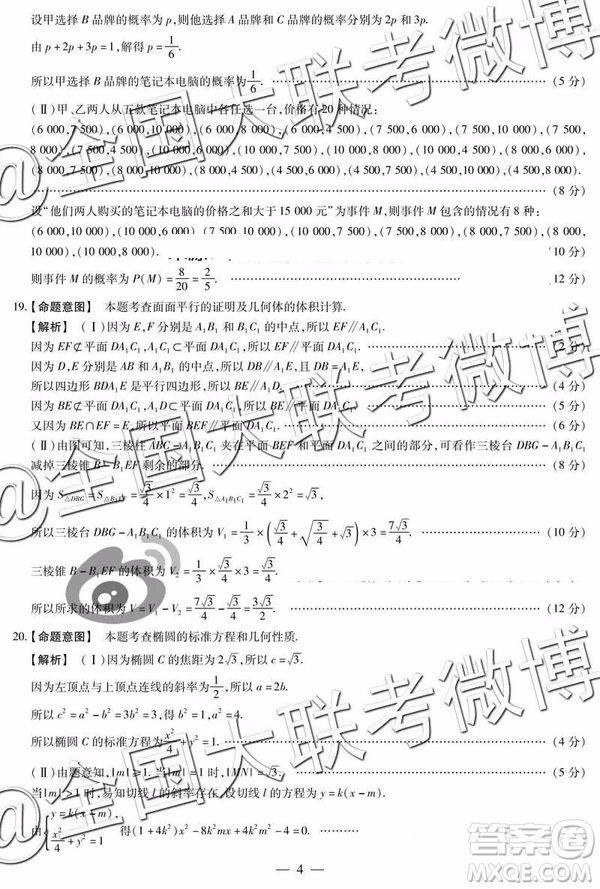 设甲选择 B 品牌的概率为 p,则他选择 A 品牌和 C 品牌的概率分别为 2p 和 3p.
由 p+2p+3p=1,解得 p=1/6.
所以甲选择 B 品牌的笔记本电脑的概率为1/6. (5 分)
(Ⅱ)甲、乙两人从五款笔记本电脑中各任选一台,价格有 20 种情况:
(6 000,7 500),(6 000,10 000),(6 000,8 000),(6 000,4 500),(7 500,6 000),(7 500,10 000),(7 500,
8 000),(7 500,4 500),(10 000,6 000),(10 000,7 500),(10 000,8 000),(10 000,4 500),(8 000,6 000),
(8 000,7 500),(8 000,10 000),(8 000,4 500),(4 500,6 000),(4 500,7 500),(4 500,10 000),(4 500,8 000).
(8 分)
设“他们两人购买的笔记本电脑的价格之和大于 15 000 元”为事件 M,则事件 M 包含的情况有 8 种:
(6 000,10 000),(7 500,10 000),(7 500,8 000),(10 000,6 000),(10 000,7 500),(10 000,8 000),(8 000,
10 000),(10 000,8 000). (10 分)
则事件 M 的概率为 P(M)=8/20=2/5. (12 分)
19.【命题意图】 本题考查面面平行的证明及几何体的体积计算.
【解析】 (Ⅰ)因为 E,F 分别是 A₁B₁ 和 B₁C₁ 的中点,所以 EF∥A₁C₁.
因为 EF⊄平面 DA₁C₁,A₁C₁⊂平面 DA₁C₁,所以 EF∥平面 DA₁C₁. (2 分)
因为 D,E 分别是 AB 和 A₁B₁ 的中点,所以 DB∥A₁E,且 DB=A₁E.
所以四边形 BDA₁E 是平行四边形,所以 BE∥A₁D. (4 分)
因为 BE⊄平面 DA₁C₁,A₁D⊂平面 DA₁C₁,所以 BE∥平面 DA₁C₁.
又因为 BE∩EF=E,所以平面 BEF∥平面 DA₁C₁. (6 分)
(Ⅱ)由图可知,三棱柱 ABC-A₁B₁C₁ 夹在平面 BEF 与平面 DA₁C₁ 之间的部分,可看作三棱台 DBG-A₁B₁C₁
减掉三棱锥 B-B₁EF 剩余的部分. (8 分)
因为 S△DBG=S△B₁EF=√3/4×1²=√3/4,S△A₁B₁C₁=√3/4×2²=√3,
所以三棱台 DBG-A₁B₁C₁ 的体积为 V₁=1/3×(√3/4+√(√3/4×√3)+√3)×3=7√3/4. (10 分)
三棱锥 B-B₁EF 的体积为 V₂=1/3×√3/4×3=√3/4.
所以所求的体积为 V=V₁-V₂=7√3/4-√3/4=3√3/2. (12 分)
20.【命题意图】 本题考查椭圆的标准方程和几何性质.
【解析】 (Ⅰ)因为椭圆 C 的焦距为 2√3,所以 c=√3.
因为左顶点与上顶点连线的斜率为1/2,所以 a=2b.
所以 c²=a²-b²=3b²=3,所以 b²=1,a²=4.
所以椭圆 C 的标准方程为x²/4+y²=1. (4 分)
(Ⅱ)由题意知,|m|≥1.当|m|=1 时,|MN|=√3. (5 分)
当|m|>1 时,易知切线 l 的斜率存在,设切线 l 的方程为 y=k(x-m).
由{y=k(x-m), x²/4+y²=1 得(1+4k²)x²-8k²mx+4k²m²-4=0.
— 4 —
@全国大联考微博
@全国大联考微博
@全国大联考微博
答案圈
MXQE.COM